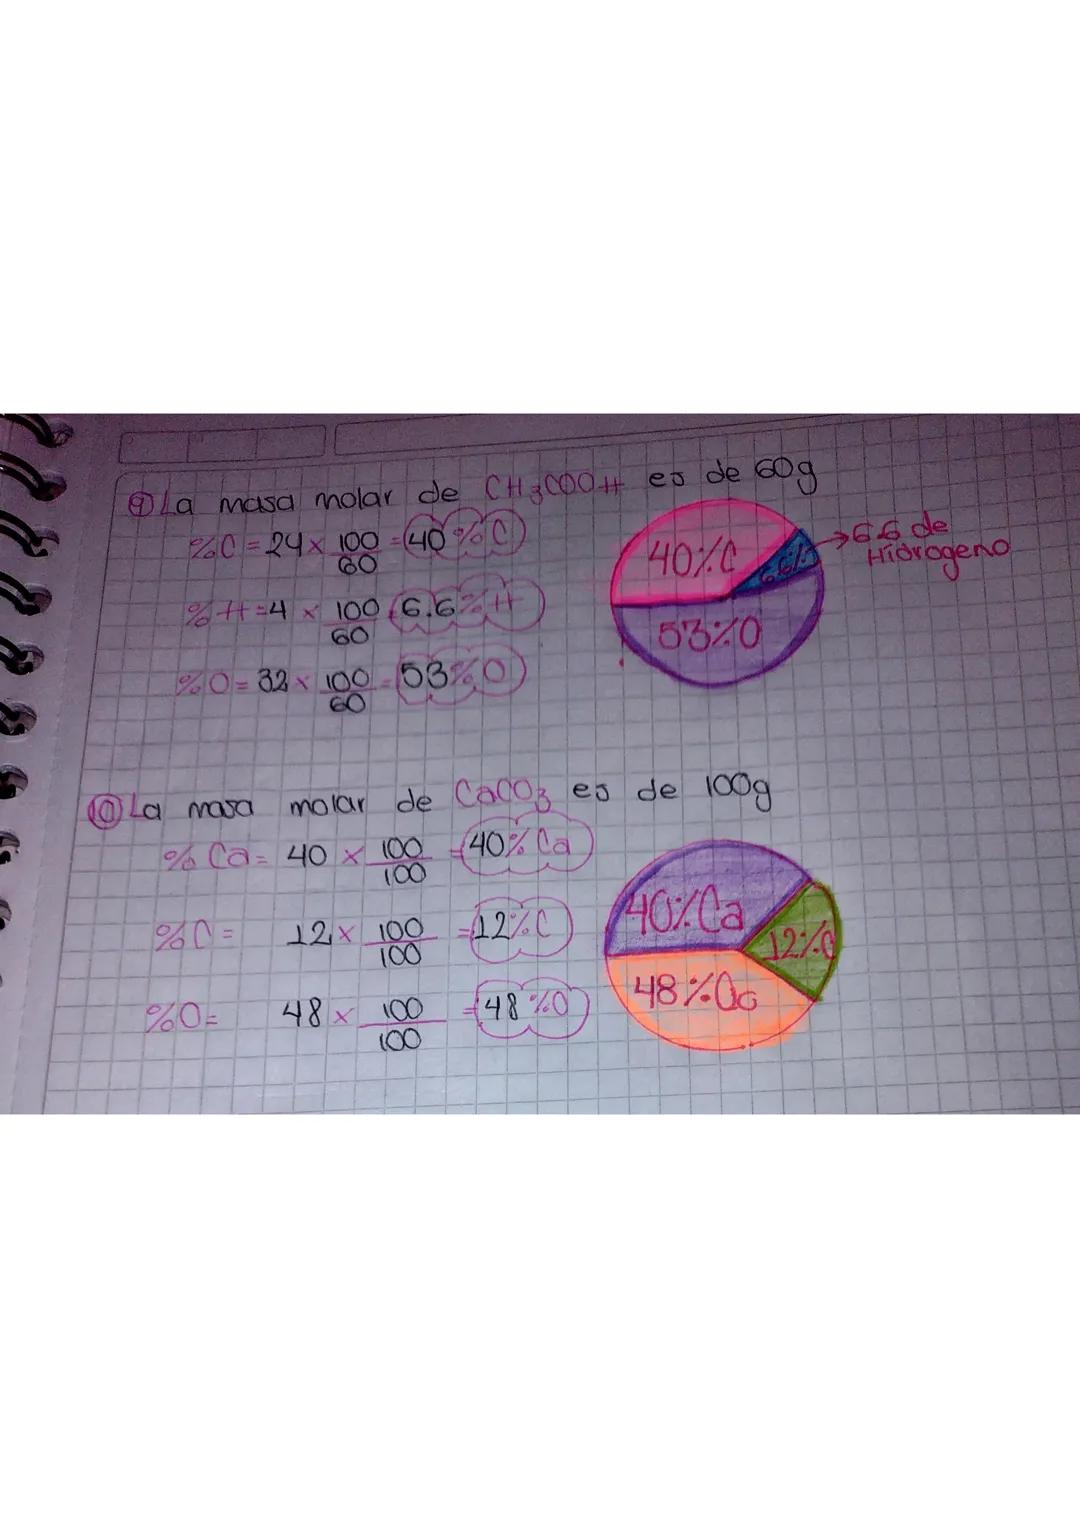 ⑨ La masa molar de CH3COOH es de 60g
%C = 24 x 100/60 = 40 % C
%H = 4 x 100/60 6.6 % H
%O = 32 x 100/60 = 53 % O
40%C
6.6%
53%O
→ 6.6 de
Hidrogeno
⑩ La masa molar de CaCO3 es de 100g
% Ca = 40 x 100/100 = 40% Ca
%C = 12 x 100/100 = 12%C
%O = 48 x 100/100 = 48 %O
40%Ca
12%C
48%